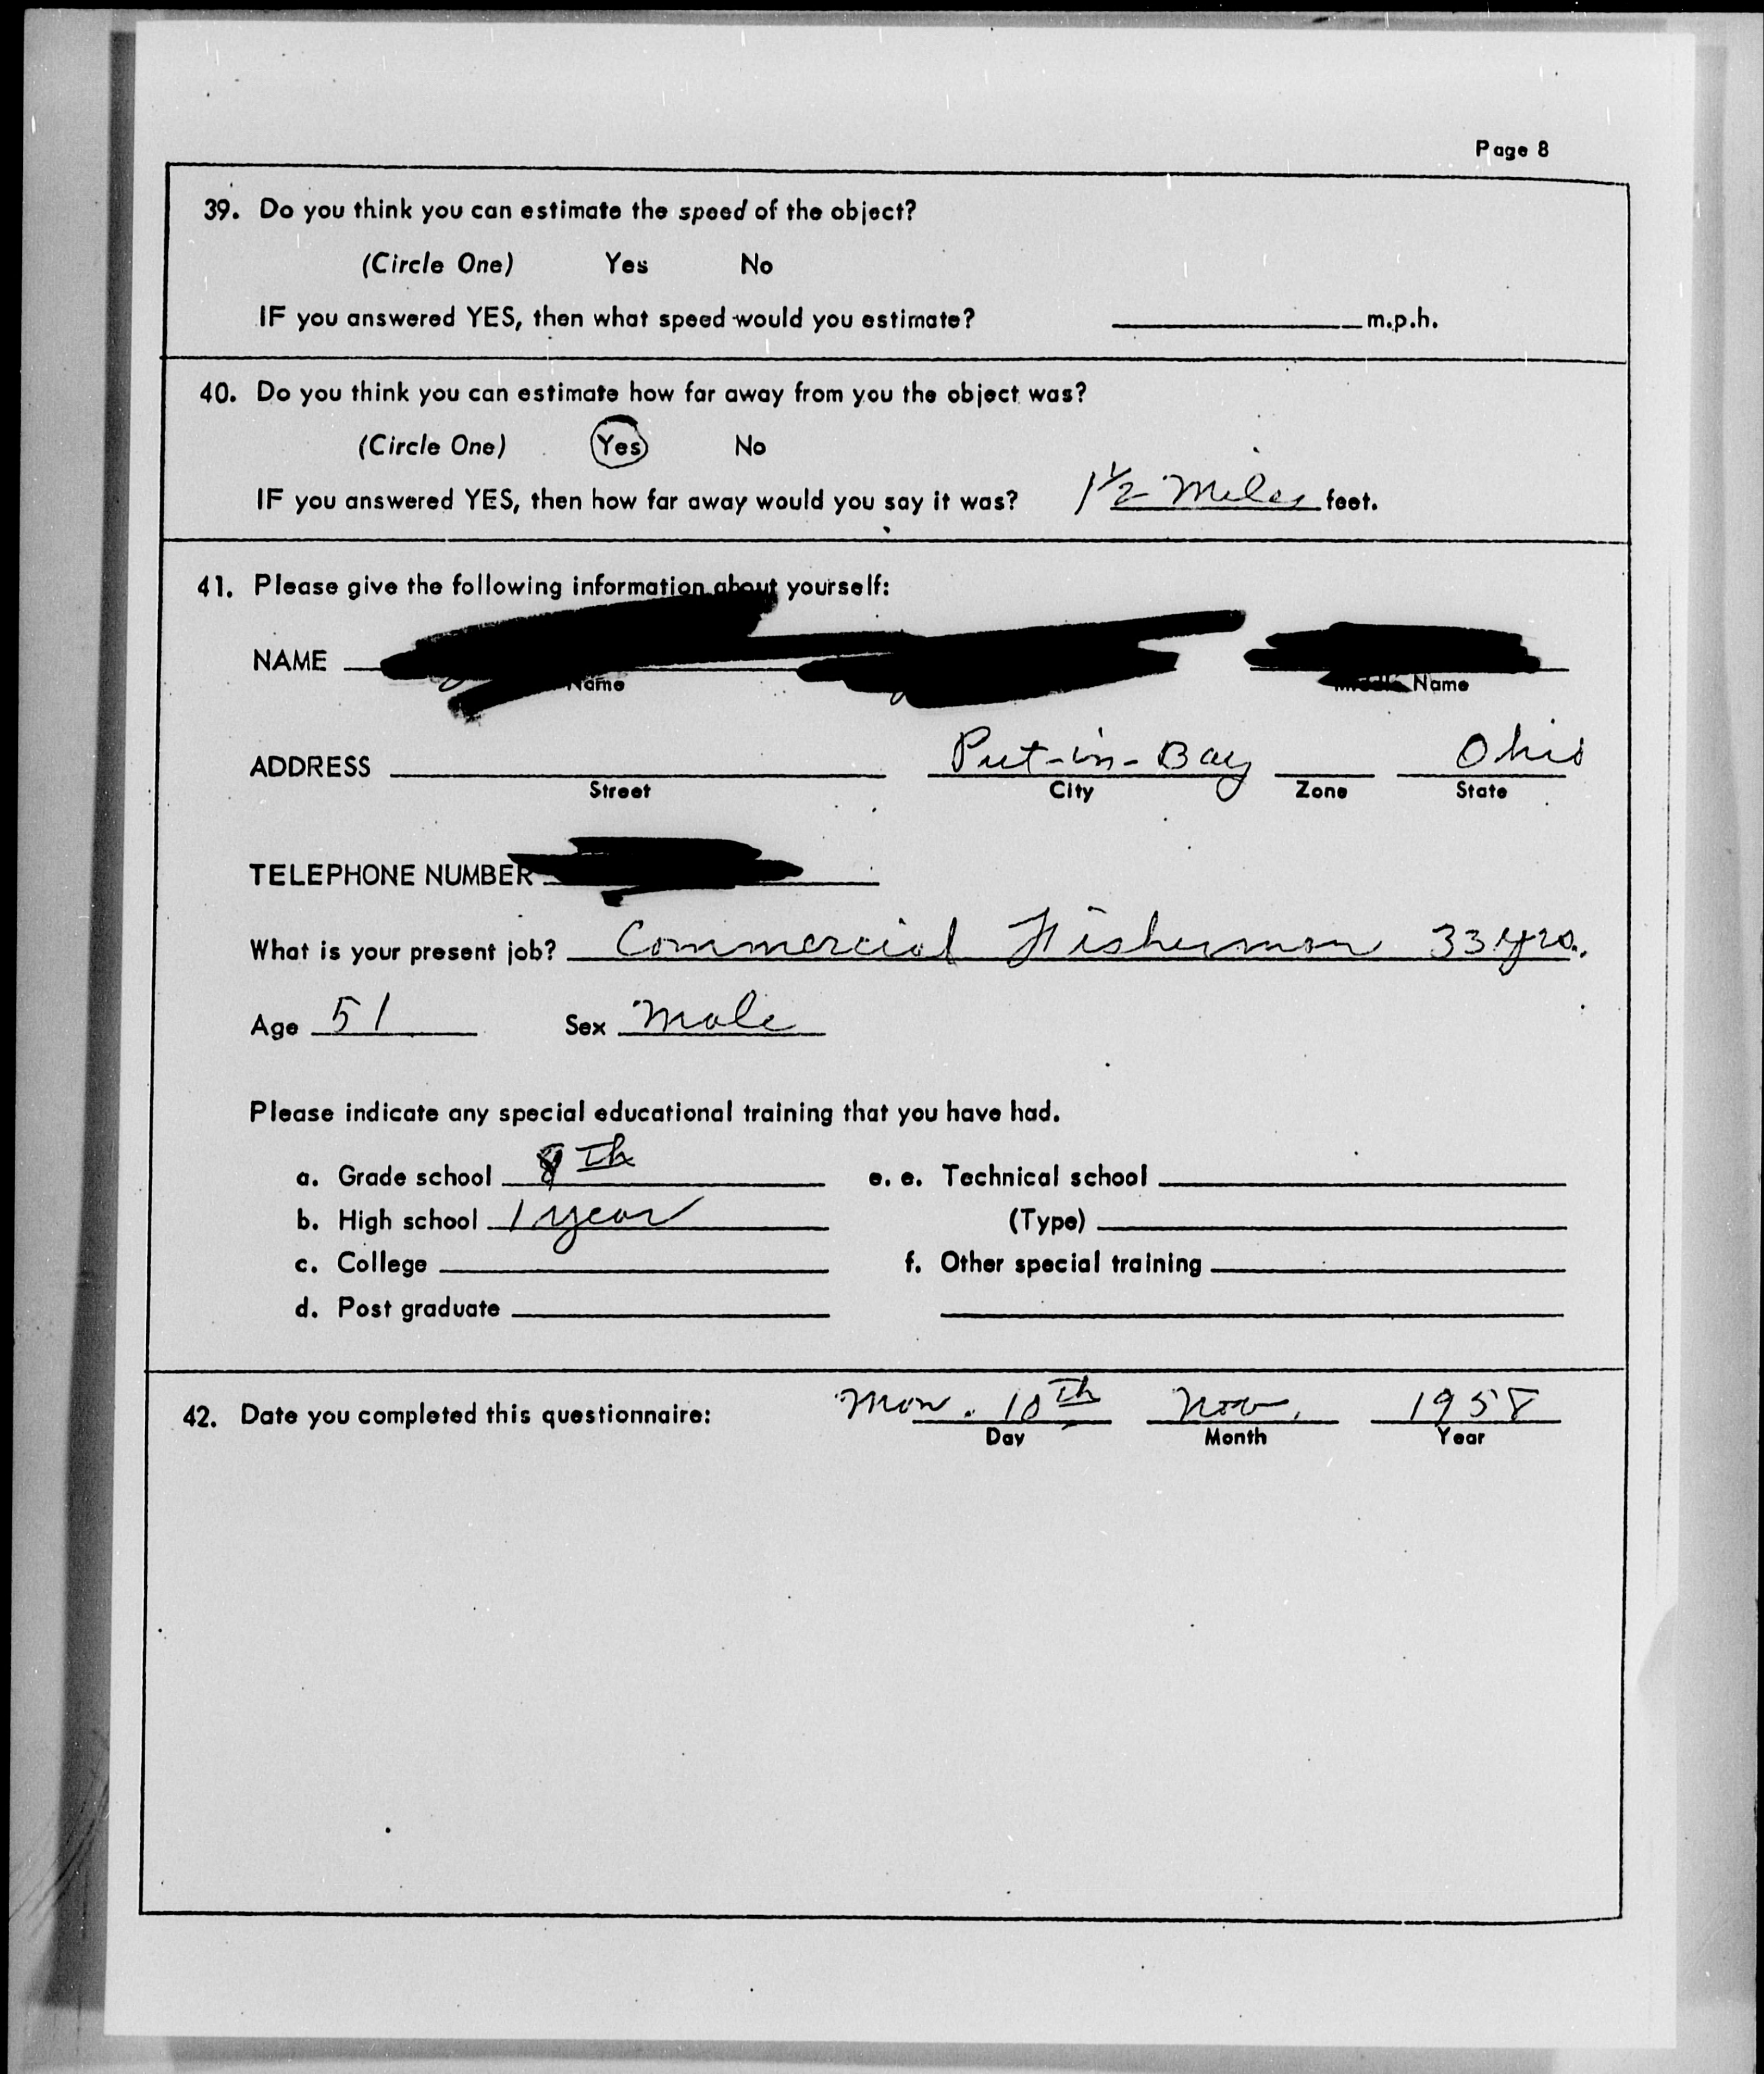 Page 8
39. Do you think you can estimate the speed of the object?
(Circle One) Yes No
IF you answered YES, then what speed would you estimate? m.p.h.
40. Do you think you can estimate how far away from you the object was?
(Circle One) Yes No
IF you answered YES, then how far away would you say it was? 1 1/2 Miles feet.
41. Please give the following information about yourself:
NAME
Name Name
ADDRESS Put-in-Bay Ohio
Street City Zone State
TELEPHONE NUMBER
What is your present job? Commercial Fisherman 33 yrs.
Age 51 Sex Male
Please indicate any special educational training that you have had.
a. Grade school 8th e. e. Technical school
b. High school 1 year (Type)
c. College f. Other special training
d. Post graduate
42. Date you completed this questionnaire: Mon. 10th Nov. 1958
Day Month Year